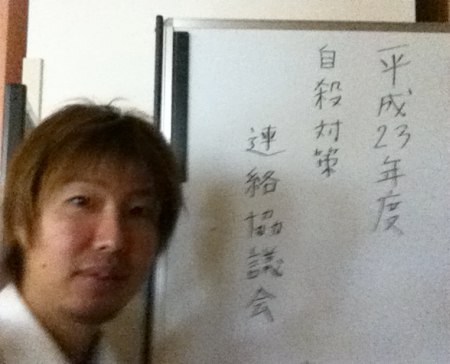 平成23年度
自殺対策
連絡協議会